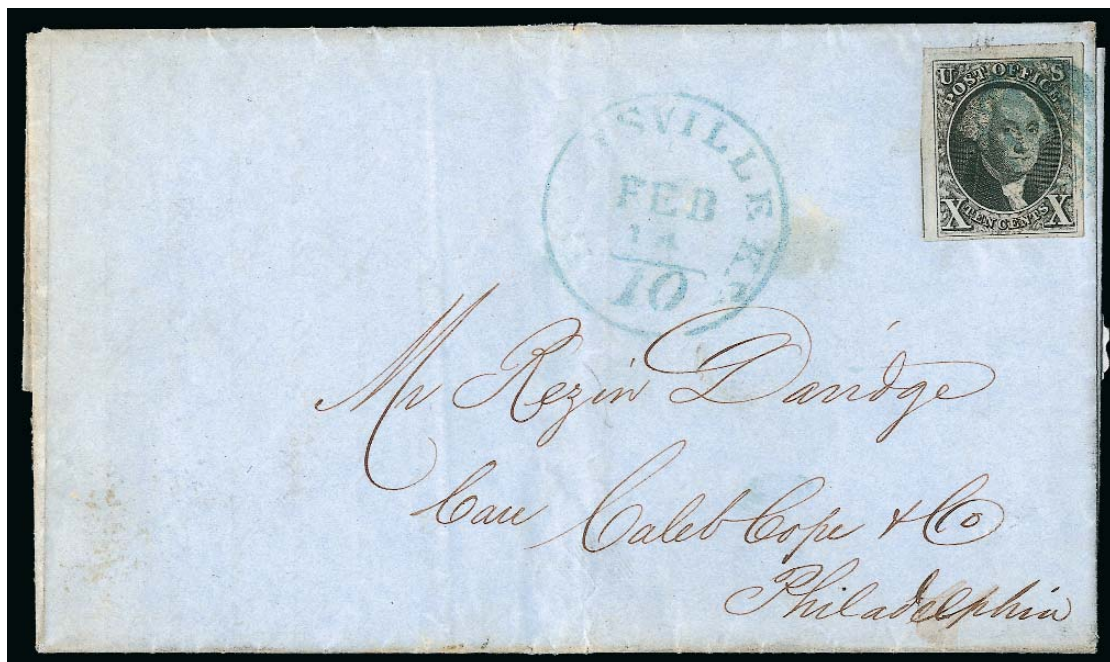 U S
POST OFFICE
X TEN CENTS X
SVILLE KY
FEB
10
Mr Rezin Davidge
Care Caleb Cope & Co
Philadelphia